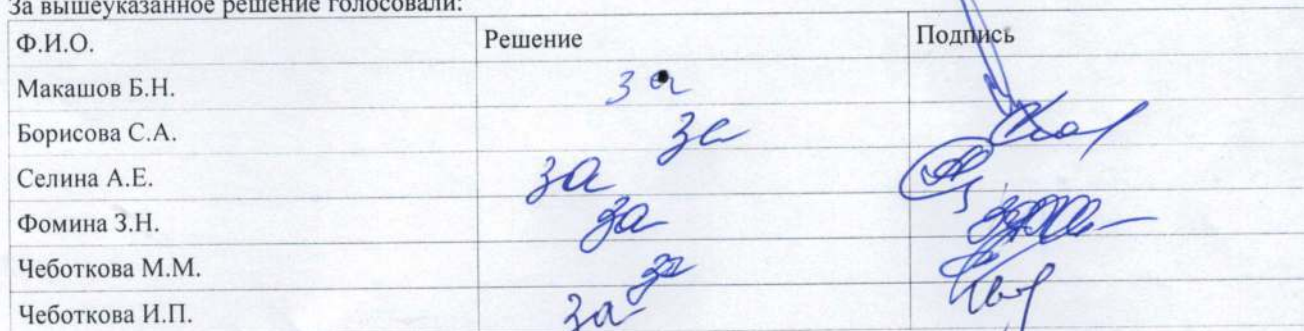 За вышеуказанное решение голосовали:
Ф.И.О. Решение Подпись
Макашов Б.Н. за
Борисова С.А. за
Селина А.Е. за
Фомина З.Н. за
Чеботкова М.М. за
Чеботкова И.П. за